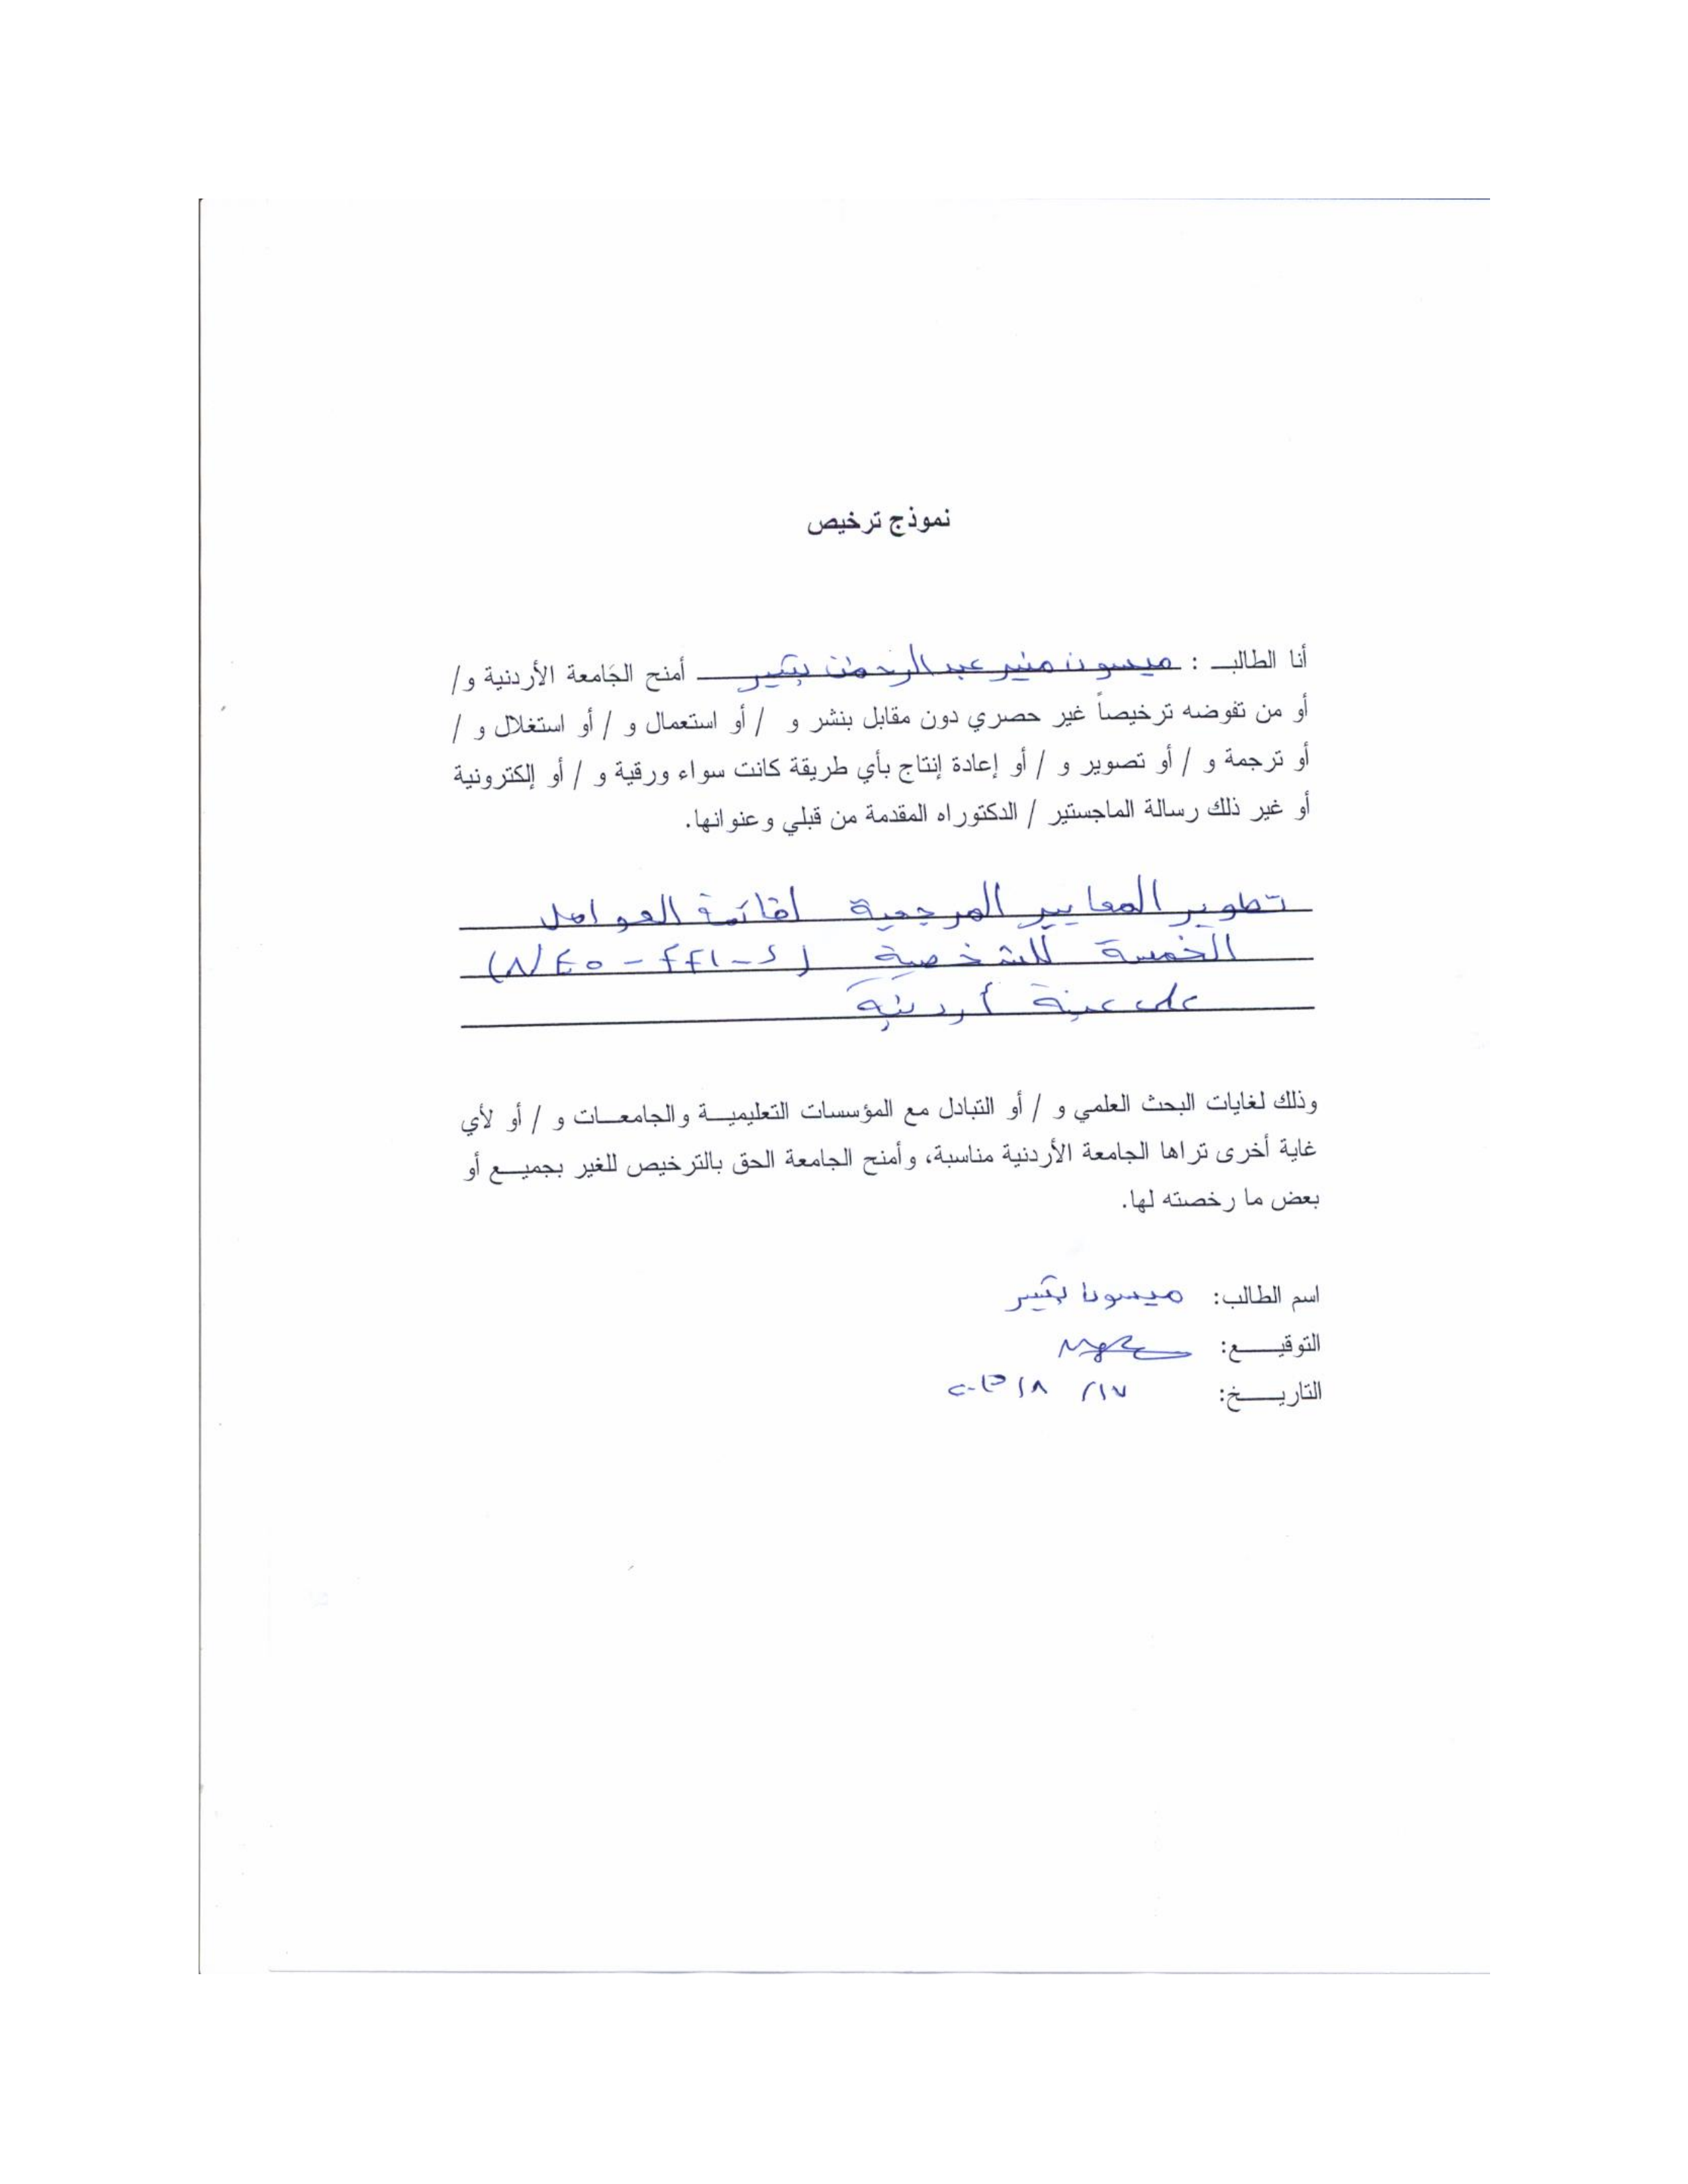 نموذج ترخيص
أنا الطالب : ميسون منير عبد الرحمن أمنح الجامعة الأردنية و/
أو من تفوضه ترخيصاً غير حصري دون مقابل بنشر و / أو استعمال و / أو استغلال و /
أو ترجمة و / أو تصوير و / أو إعادة إنتاج بأي طريقة كانت سواء ورقية و / أو إلكترونية
أو غير ذلك رسالة الماجستير / الدكتوراه المقدمة من قبلي وعنوانها.
تطوير المعايير المرجعية لقائمة العوامل
الخمسة للشخصية (NEO - FFI - S)
على عينة أردنية
وذلك لغايات البحث العلمي و / أو التبادل مع المؤسسات التعليمية والجامعات و / أو لأي
غاية أخرى تراها الجامعة الأردنية مناسبة، وأمنح الجامعة الحق بالترخيص للغير بجميع أو
بعض ما رخصته لها.
اسم الطالب: ميسون
التوقيع:
التاريخ: